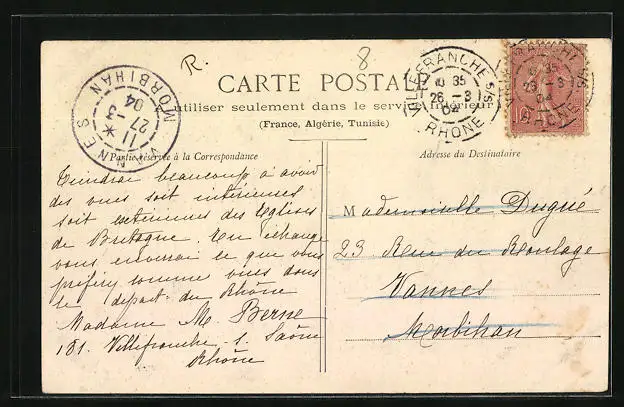 R.
8
CARTE POSTALE
à utiliser seulement dans le service intérieur
(France, Algérie, Tunisie)
Partie réservée à la Correspondance
Adresse du Destinataire
MORBIHAN
VANNES
11 *
27 - 3
04
VILLEFRANCHE S/S
35
26 - 3
04
RHONE
VILLEFRANCHE S/S
35
26 - 3
04
RHONE
Tiendrai beaucoup à avoir
des vues soit intérieures
soit extérieures des Eglises
de Bretagne. En échange
vous enverrai ce que vous
préférez comme vues dans
le départ. du Rhône
Madame M. Berne
181. Villefranche - s. Saône
Rhône
Mademoiselle Dugué
23 Rue du Roulage
Vannes
Morbihan